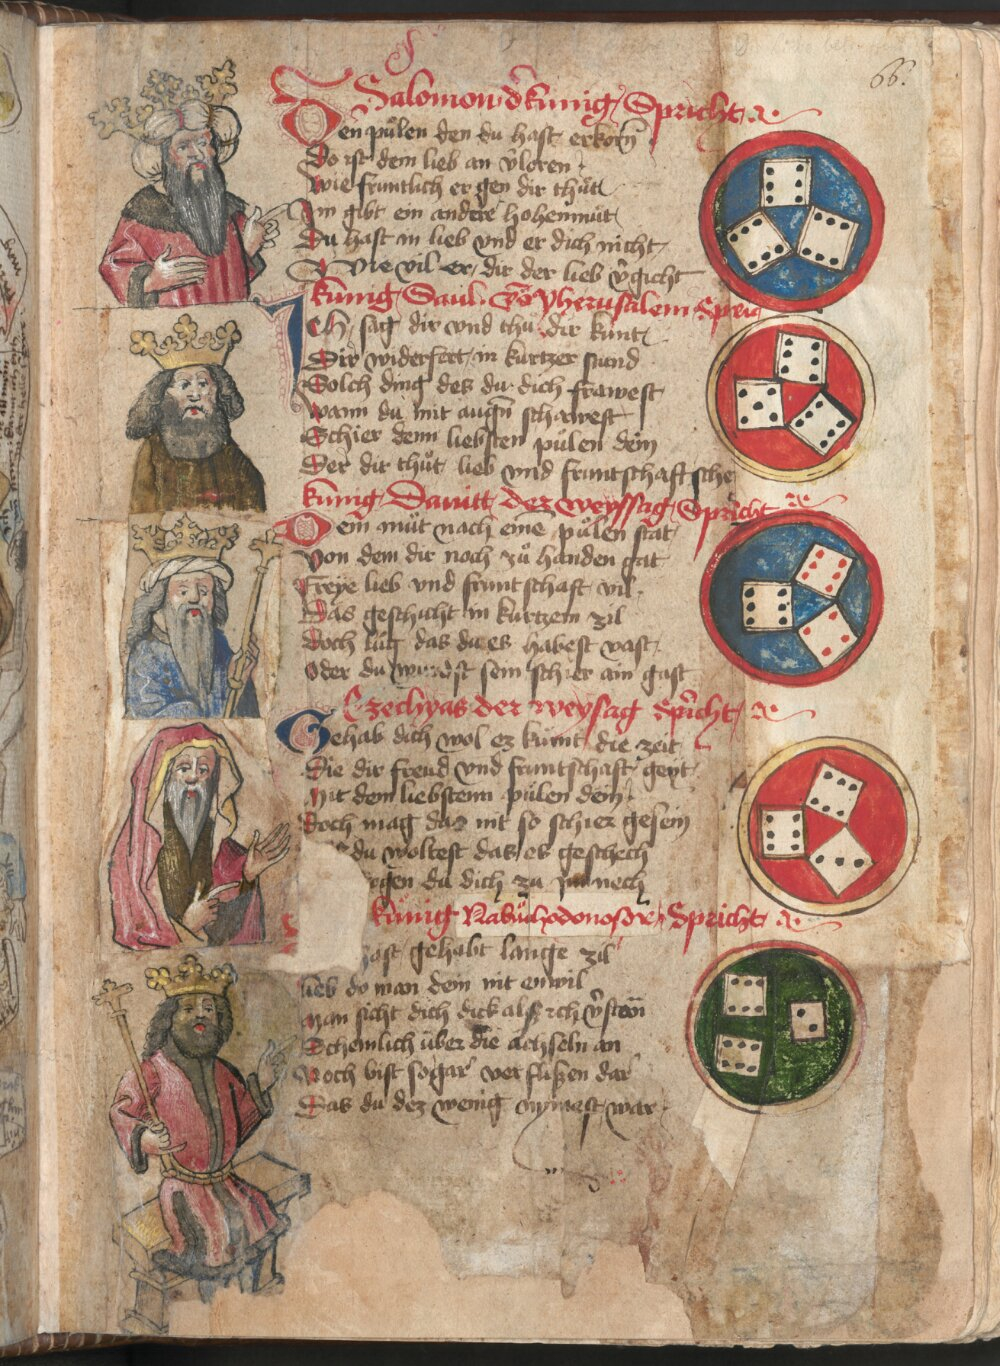 66.
Salomon d' kunig Spricht
Den půlen den du hast erkorn
Do ist dem lieb an v'loren
Wie fruntlich er gen dir thůt
Im gibt ein andere hohenmůt
Du hast in lieb vnd er dich nicht
Wie vil er dir der lieb v'gicht
kunig Saul vō yherusalem Spricht
Ich sag dir vnd thu dir kunt
Dir widerfert in kurtzer stund
Solch ding des du dich frawest
Wann du mit augn schawest
Schier denn liebsten půlen dein
Der dir thůt lieb vnd fruntschaft sche
kunig Dauitt der weyssag Spricht
Dein můt nach eine půlen stat
Von dem dir noch zů handen gat
Freye lieb vnd fruntschaft vil
Das geschicht in kurtzem zil
Doch lůg das du es habest vast
Oder du wurdst sein schier ain gast
Ezechyas der weysag Spricht
Gehab dich wol ez kumt die zeit
Die dir freud vnd fruntschaft geyt
Mit dem liebstenn půlen dein
Doch mag das nit so schier gesein
du woltest das es geschech
du dich zu nech
kunig Nabuchodonosor Spricht
hast gehabt lange zil
lieb do man dein nit enwil
Man sicht dich dick als
Schemlich über die achseln an
Noch bist sogar verflißen dar
Das du dez wenig nymest war